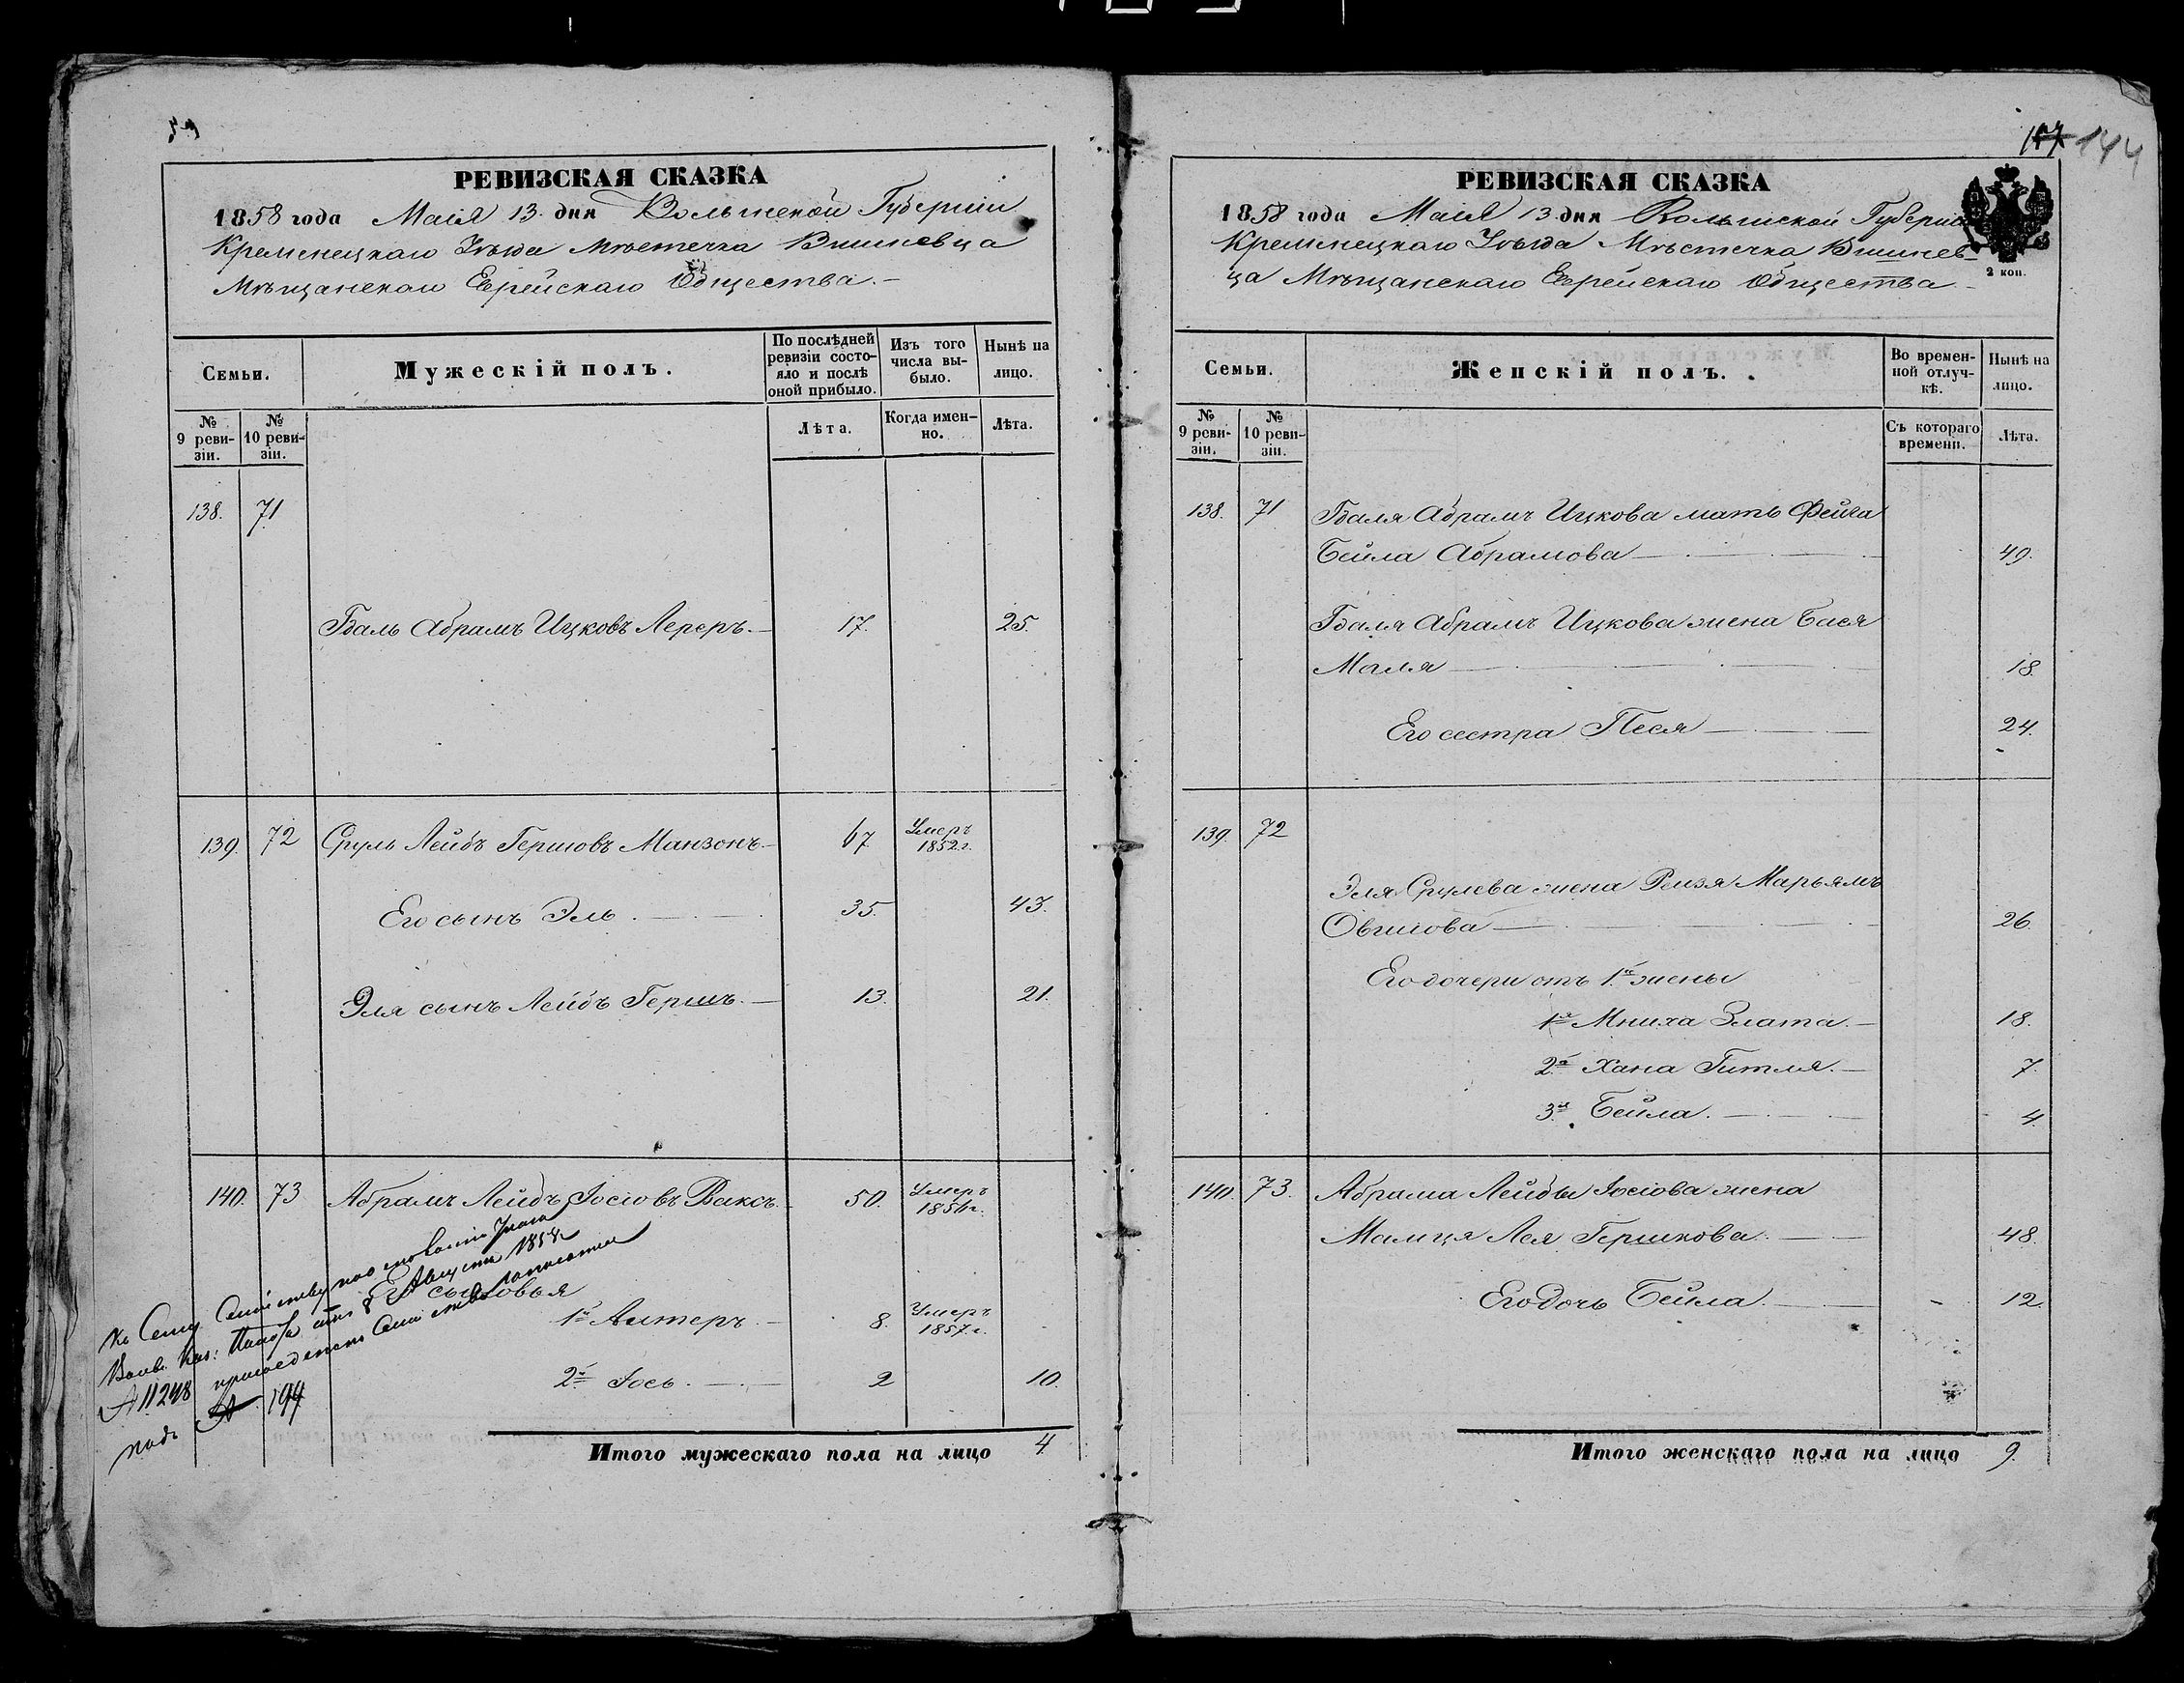 РЕВИЗСКАЯ СКАЗКА
1858 года Маія 13 дня Волынской Губерніи
Кременецкаго Уѣзда Мѣстечка Вишневца
Мѣщанскаго Еврейскаго Общества.-
Семьи.
Мужескій полъ.
По послѣдней ревизіи состояло и послѣ оной прибыло.
Изъ того числа выбыло.
Ныпѣ на лицо.
№ 9 ревизіи.
№ 10 ревизіи.
Лѣта.
Когда именно.
Лѣта.
138. 71
Гдаль Абрамъ Ицковъ Лереръ.- 17. 25.
139. 72 Сруль Лейбъ Гершовъ Манзонъ.- 67 Умеръ 1852 г.
Его сынъ Эль. 35. 43.
Эля сынъ Лейбъ Гершъ.- 13. 21.
140. 73 Абрамъ Лейбъ Іосіовъ Ваксъ. 50. Умеръ 1856 г.
Его сыновья
1й Алтеръ.- 8. Умеръ 1857 г.
2й Іось.- 2 10.
Къ Сему Семейству
Каз: отъ 8 Августа 1858
№ 11248
подъ № 194
Итого мужескаго пола на лицо 4
144
РЕВИЗСКАЯ СКАЗКА
1858 года Маія 13 дня Волынской Губерніи
Кременецкаго Уѣзда Мѣстечка Вишнев-
ца Мѣщанскаго Еврейскаго Общества-
2 коп.
Семьи.
Женскій полъ.
Во временной отлучкѣ.
Ныпѣ на лицо.
№ 9 ревизіи.
№ 10 ревизіи.
Съ котораго времени.
Лѣта.
138. 71 Гдаля Абрамъ Ицкова мать Фейга
Бейла Абрамова 49.
Гдаля Абрамъ Ицкова жена Бася
Маля 18.
Его сестра Песя 24.
139. 72
Эля Срулева жена Рейзя Марьямъ
Овшіова 26.
Его дочери отъ 1й жены
1я Мниха Злата.- 18.
2я Хана Гитля.- 7.
3я Бейла. 4.
140. 73. Абрама Лейбы Іосіова жена
Малця Лея Гершкова. 48.
Его дочь Бейла. 12.
Итого женскаго пола на лицо 9.